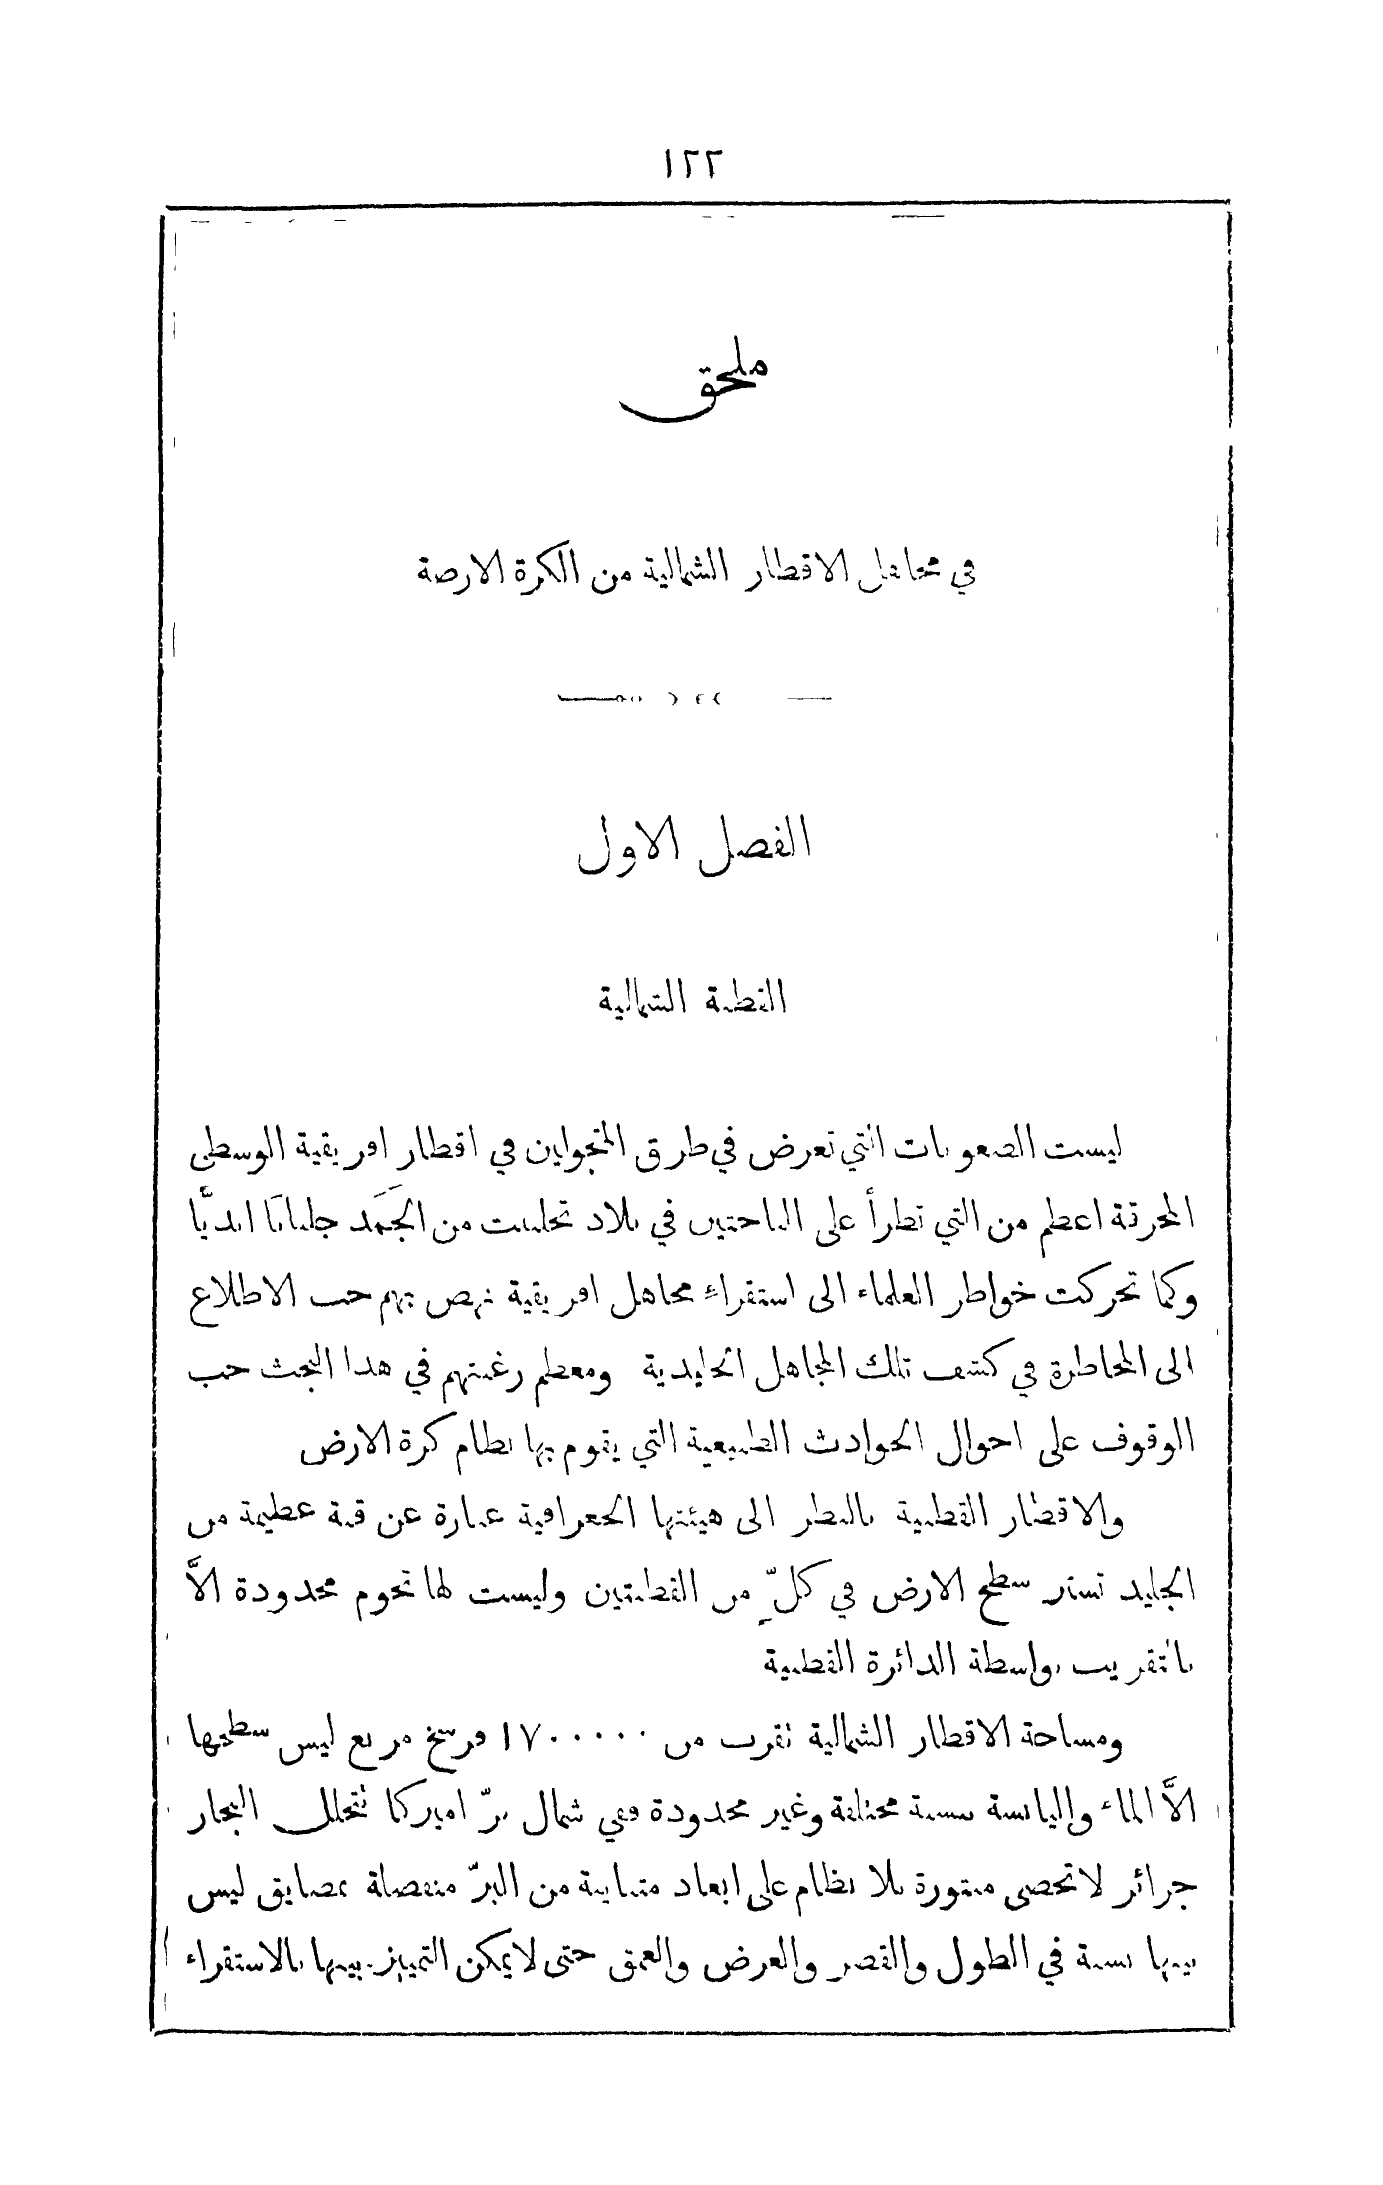 ١٢٢
ملحق
في مجاهل الاقطار الشمالية من الكرة الارضية
الفصل الاول
القطبة الشمالية
ليست الصعوبات التي تعرض في طرق المتجولين في اقطار افريقية الوسطى
المحرقة اعظم من التي تطرأ على الباحثين في بلاد تجلببت من الجَمَد جلبابًا ابديًّا
وكما تحركت خواطر العلماء الى استقراء مجاهل افريقية نهض بهم حب الاطلاع
الى المخاطرة في كشف تلك المجاهل الجليدية ومعظم رغبتهم في هذا البحث حب
الوقوف على احوال الحوادث الطبيعية التي يقوم بها نظام كرة الارض
والاقطار القطبية بالنظر الى هيئتها الجغرافية عبارة عن قبة عظيمة من
الجليد تستر سطح الارض في كلٍّ من القطبتين وليست لها تخوم محدودة الاَّ
بالتقريب بواسطة الدائرة القطبية
ومساحة الاقطار الشمالية تقرب من ١٧٠٠٠٠٠ فرسخ مربع ليس سطحها
الاَّ الماء واليابسة بنسبة مختلفة وغير محدودة ففي شمال برّ اميركا تتخلل البحار
جزائر لا تحصى منثورة بلا نظام على ابعاد متباينة من البرّ منفصلة بمضايق ليس
بينها نسبة في الطول والقصر والعرض والعمق حتى لا يمكن التمييز بينها بالاستقراء